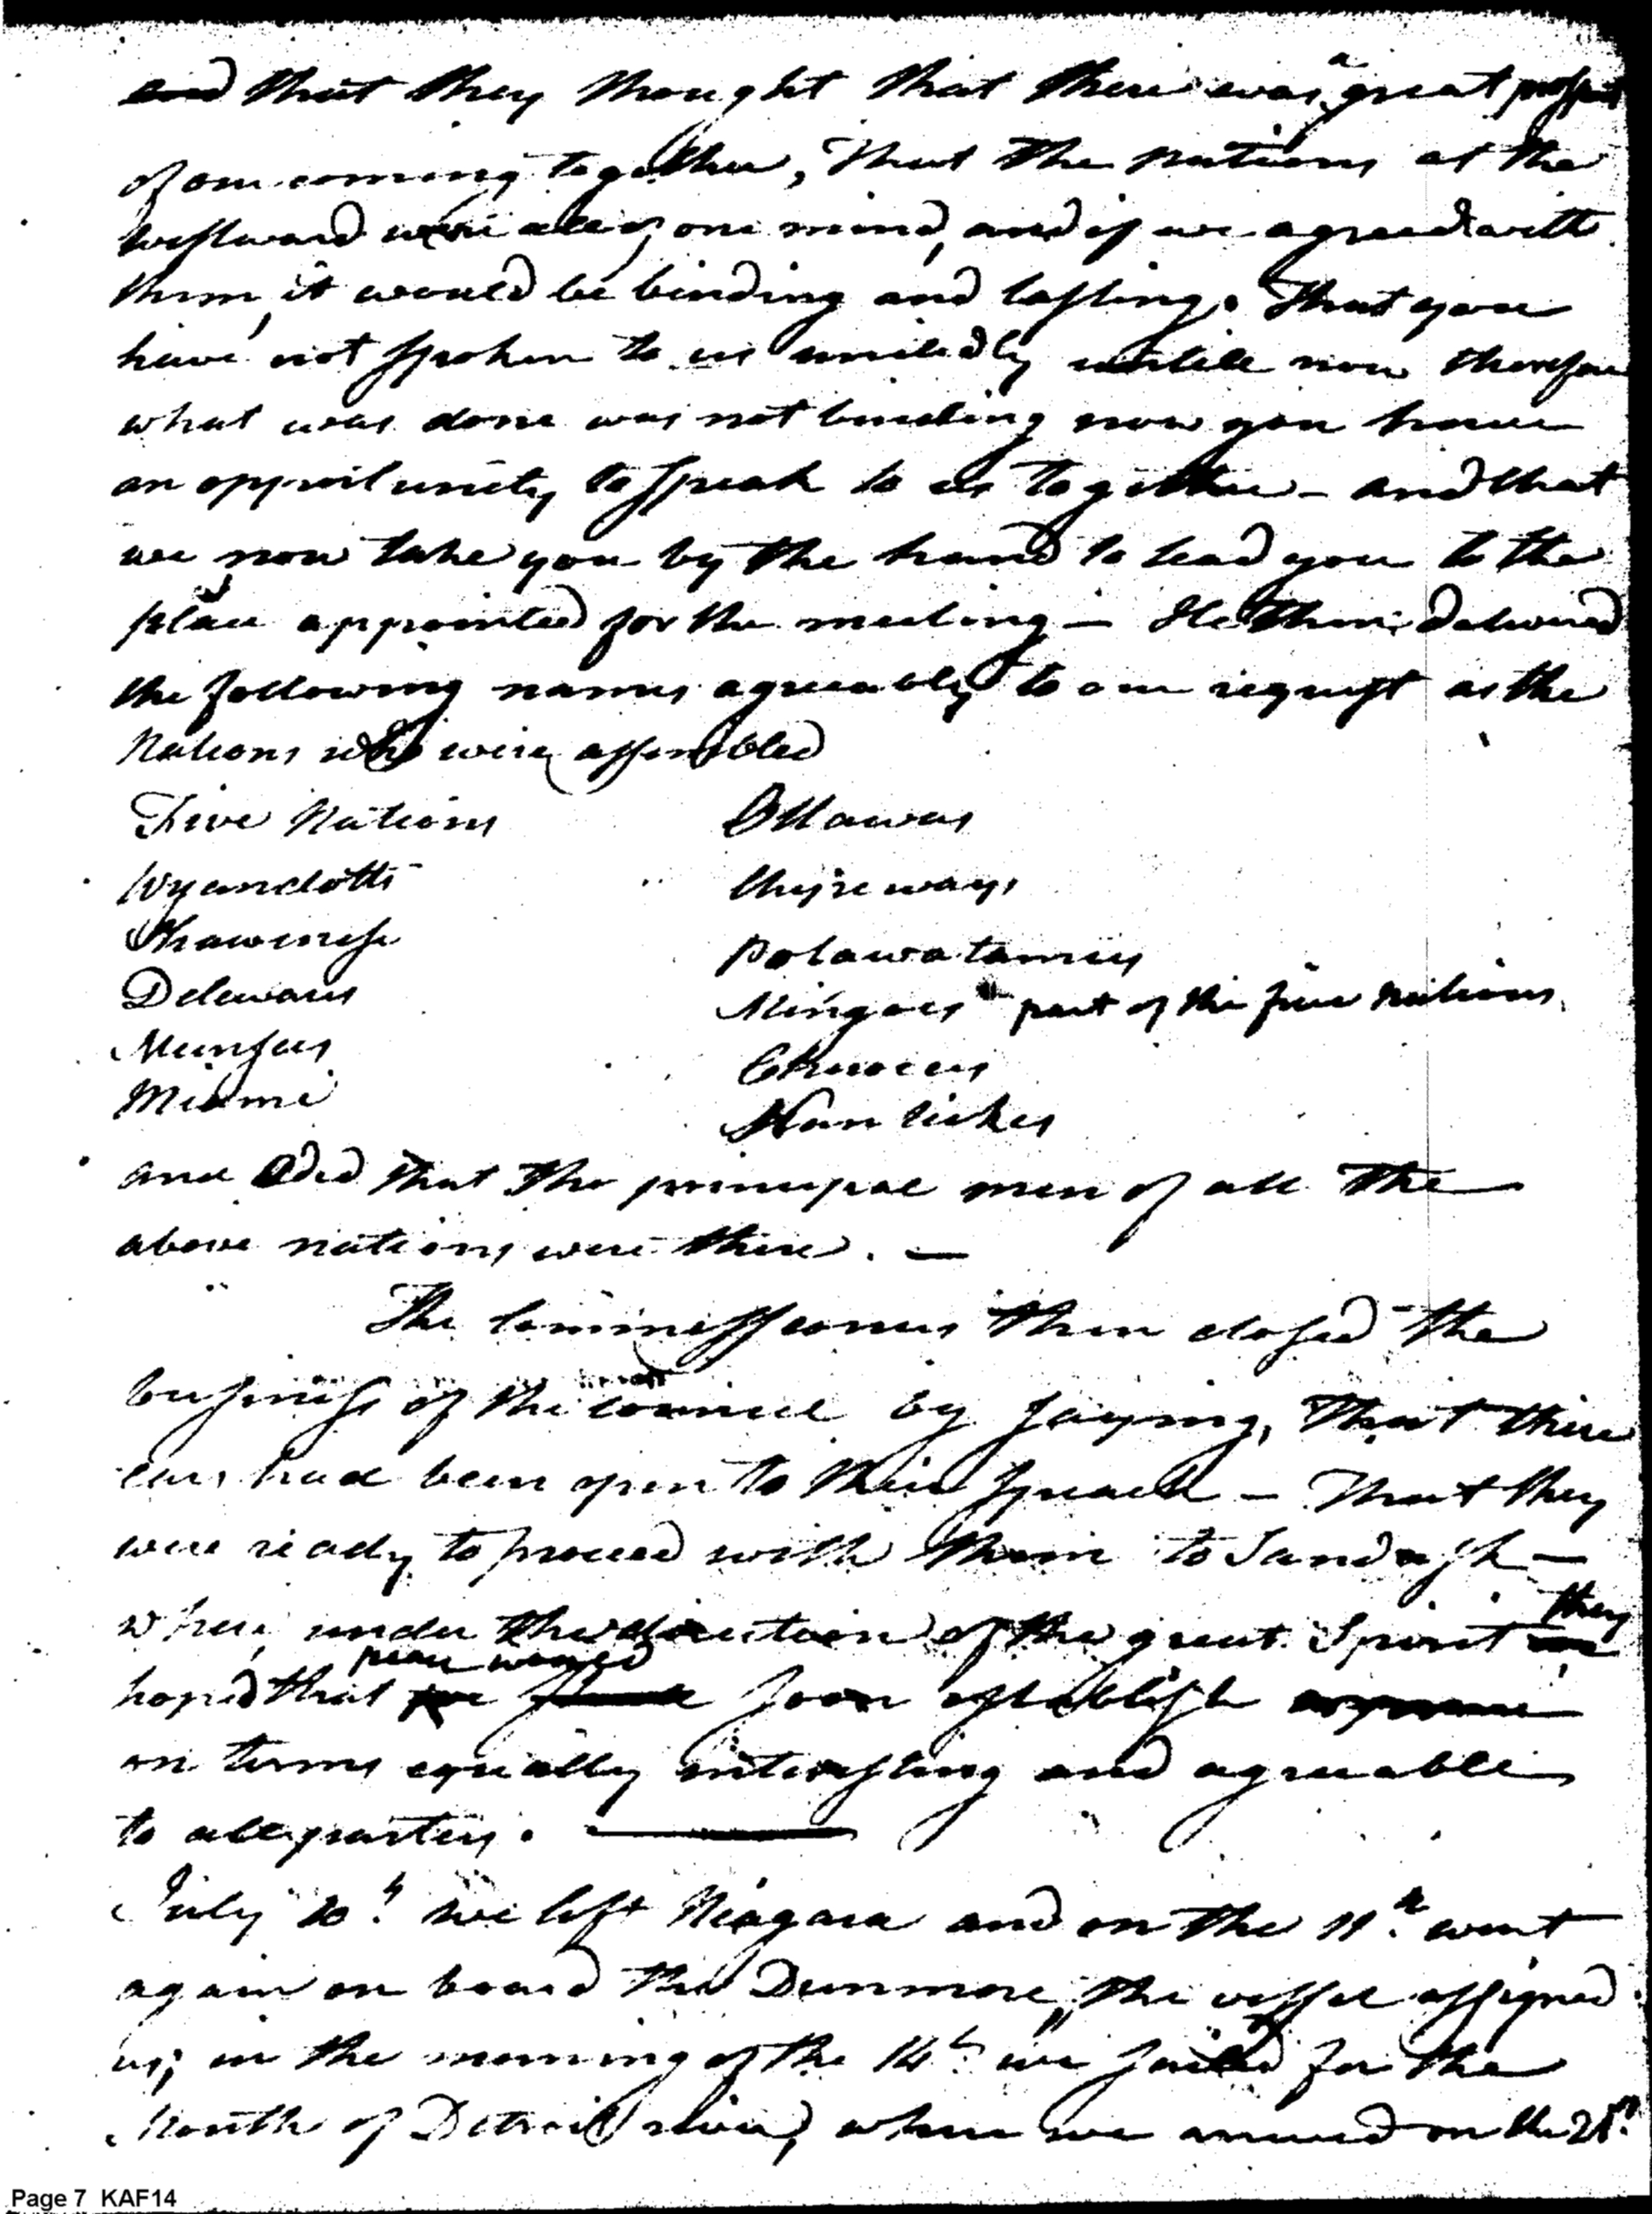 and that they thought that there was a great prospect
of our coming together, That the nations at the
westward were all of one mind, and if we agreed with
them, it would be binding and lasting. That you
have not spoken to us unitedly untill now therefore
what was done was not binding now you have
an opportunity to speak to us together - and that
we now take you by the hand to lead you to the
place appointed for the meeting - He then delivered
the following names agreeably to our request as the
Nations who were assembled
Five Nations Ottawas
Wyandotts Chipeways
Shawenese Potawatamies
Delewares Mingoes part of the five nations.
Munsees Cherocees
Miami Nantickes
and aded that the principal men of all the
above nations were there. -
The Commissioners then closed the
business of the council by saying, That their
ears had been open to their speach - That they
were ready to proceed with them to Sandusk -
where, under the direction of the great Spirit they
hoped that peace would soon establish
on terms equally interesting and agreeable
to all parties.
July 10th. we left Niagara and on the 11th. went
again on board the Dunmore, the vessel assigned
us; in the morning of the 14th. we sailed for the
Mouth of Detroit river, where we arrived on the 21st.
Page 7 KAF14